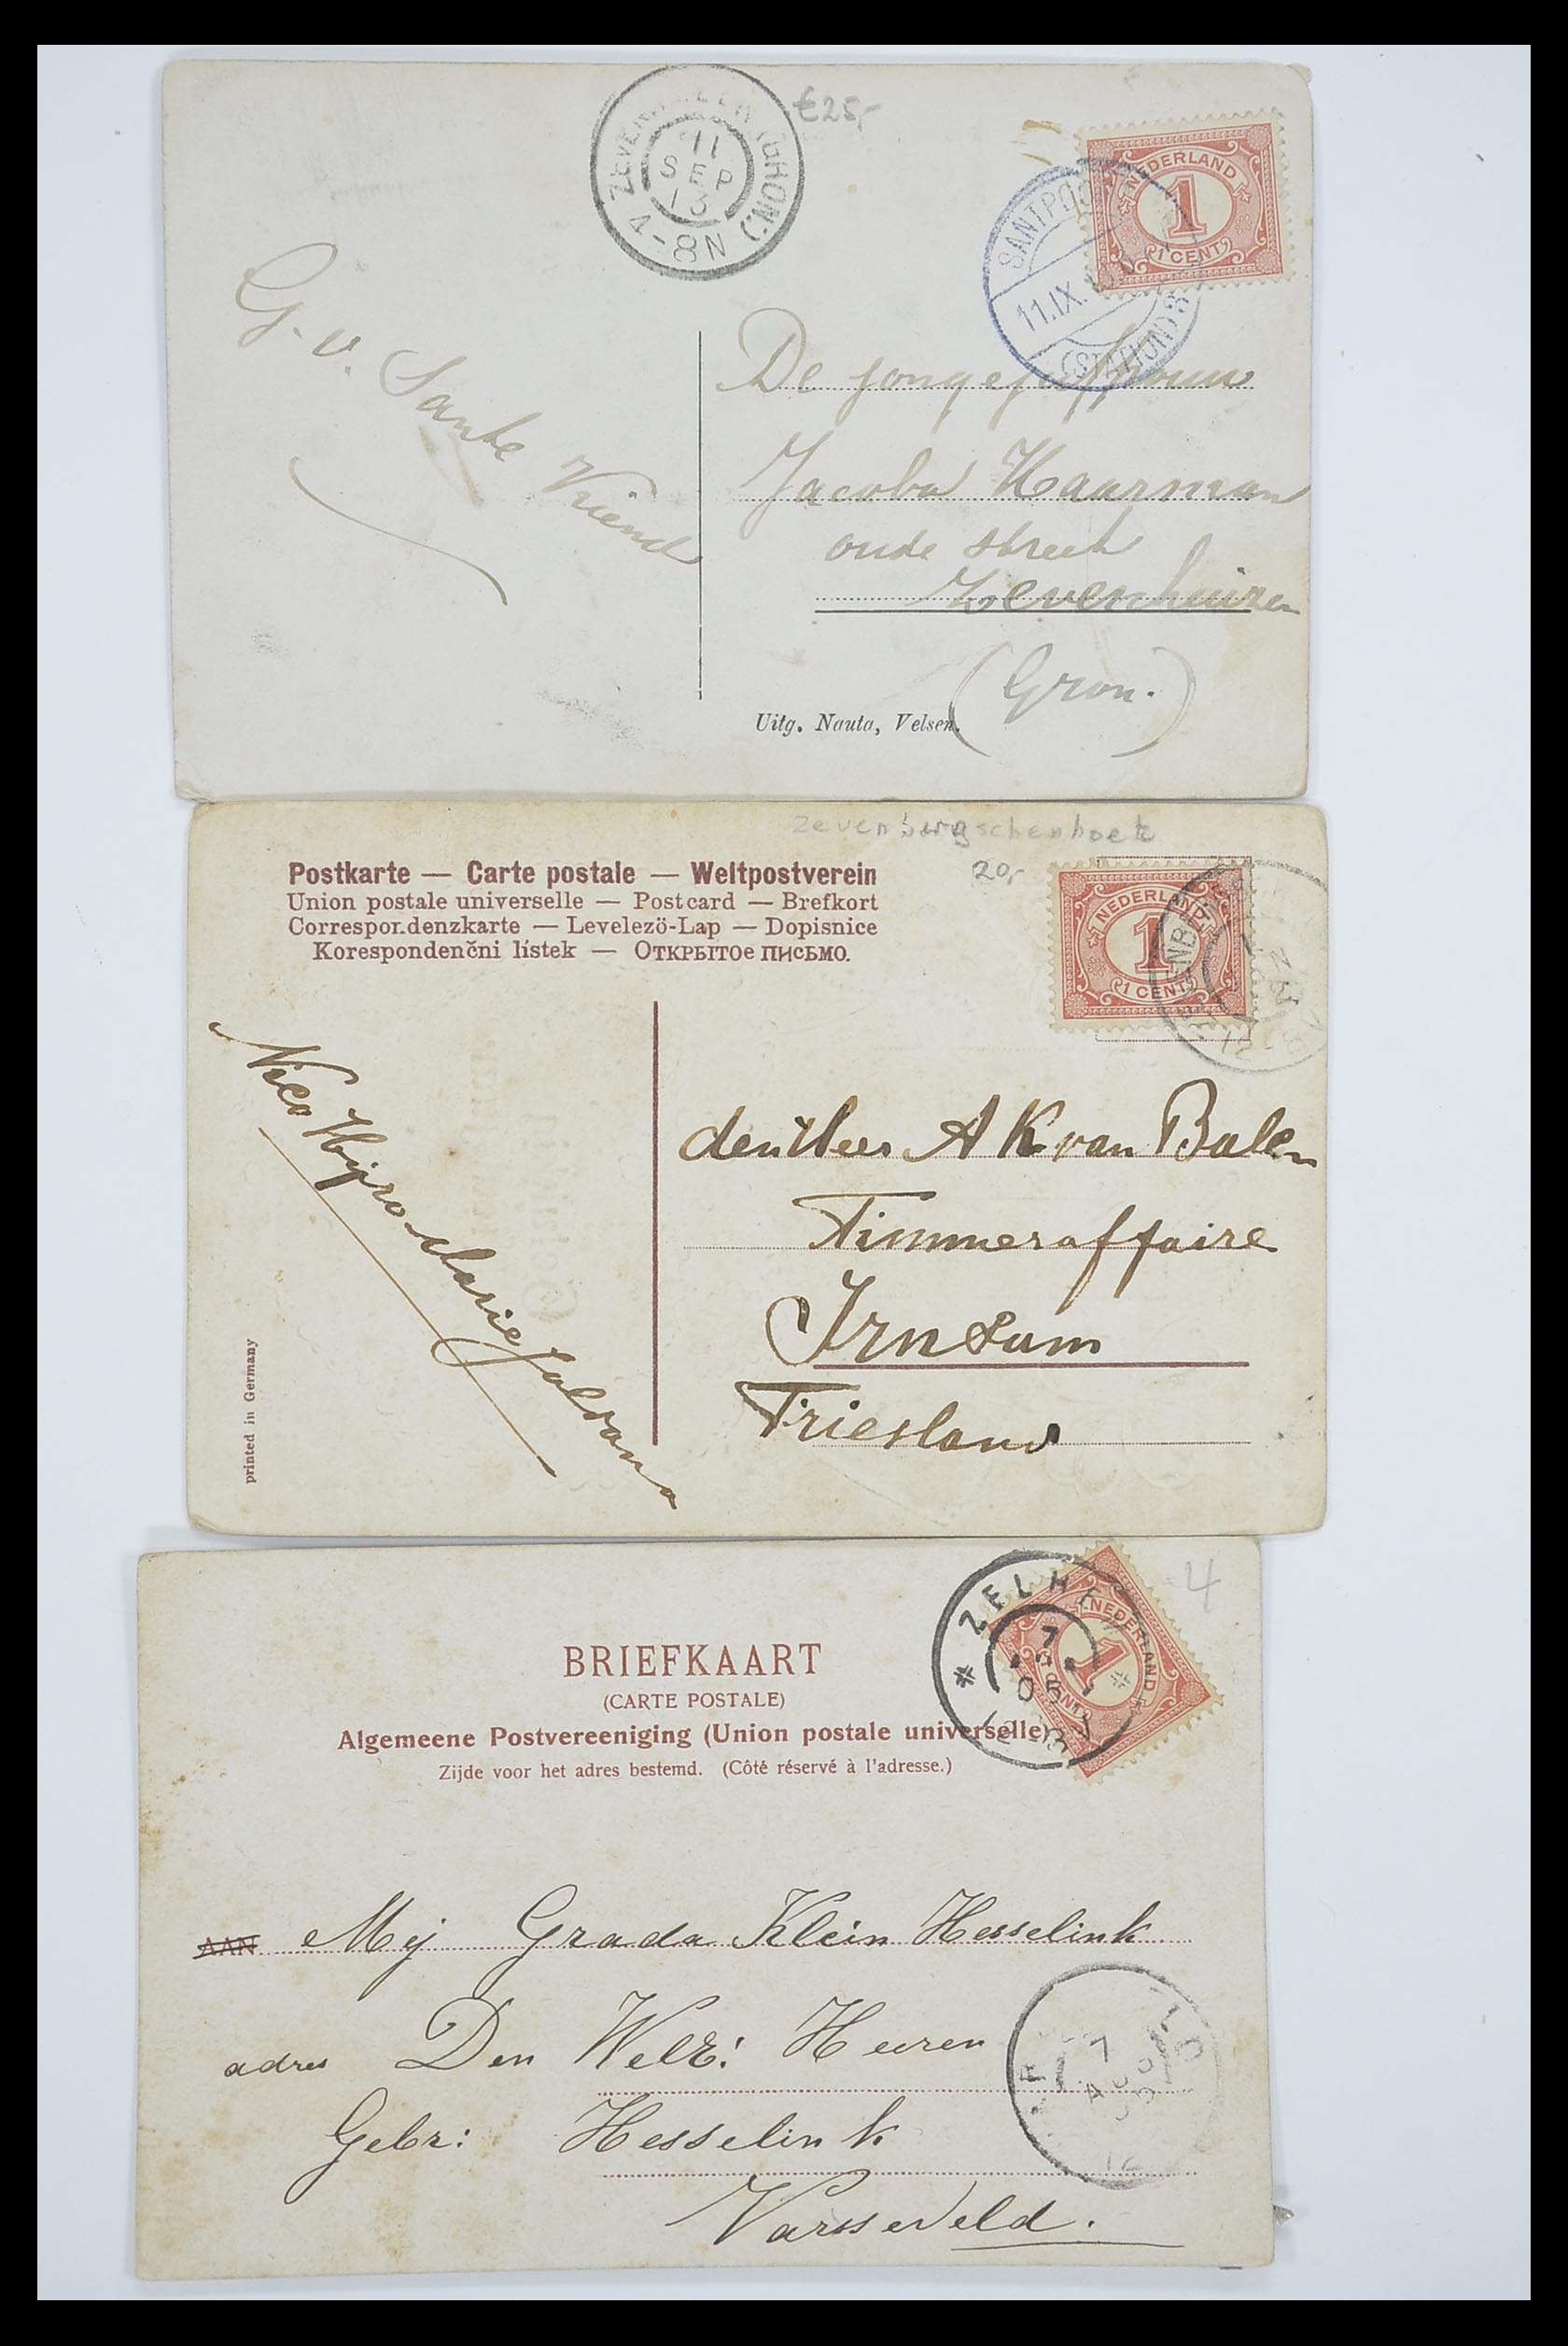 €25,-
11
SEP
13
4-8N
NEDERLAND
1
1 CENT
SANTPOO
11.IX.
(STATION)
G. v. Sante Vriend
De jongejuffrouw
Jacoba Haarman
oude streek
Zevenhuizen
(Gron.)
Uitg. Nauta, Velsen.
Zevenbergschenhoek
20,-
Postkarte — Carte postale — Weltpostverein
Union postale universelle — Postcard — Brefkort
Correspor.denzkarte — Levelezö-Lap — Dopisnice
Korespondenčni lístek — Открытое письмо.
NEDERLAND
1
1 CENT
den Heer A K van Balen
Timmeraffaire
Irnsum
Friesland
printed in Germany
4
ZELHE
7
05
NEDERLAND
1
1 CENT
BRIEFKAART
(CARTE POSTALE)
Algemeene Postvereeniging (Union postale universelle)
Zijde voor het adres bestemd. (Côté réservé à l'adresse.)
AAN Mej Grada Klein Hesselink
adres Den Welz: Heeren
Gebr: Hesselink
Varsseveld.
7